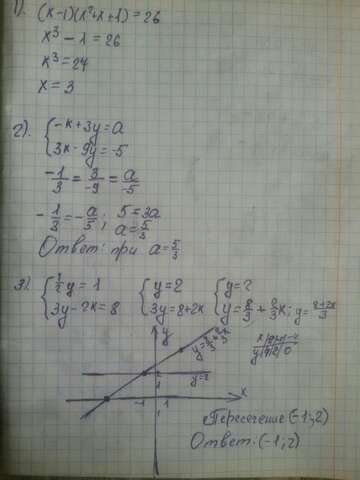 1). (x-1)(x²+x+1)=26
x³-1=26
x³=27
x=3
2). {-x+3y=a
{3x-9y=-5
-1/3=3/-9=a/-5
-1/3=-a/5; 5=3a
a=5/3
Ответ: при a=5/3
3) {1/2y=1 {y=2 {y=2
{3y-2x=8 {3y=8+2x {y=8/3+2/3x; y=(8+2x)/3
y
y=8/3+2/3x
y=2
x
-1 1
Пересечение (-1;2)
Ответ: (-1;2)